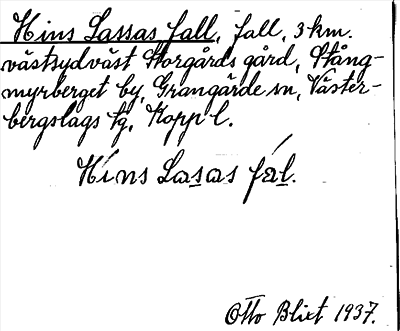 Hins Lassas fall, fall, 3 km.
västsydväst Storgårds gård, Stång-
myrberget by, Grangärde sn, Väster-
bergslags tg, Koppl.
Híns Lasas fál.
Otto Blixt 1937.